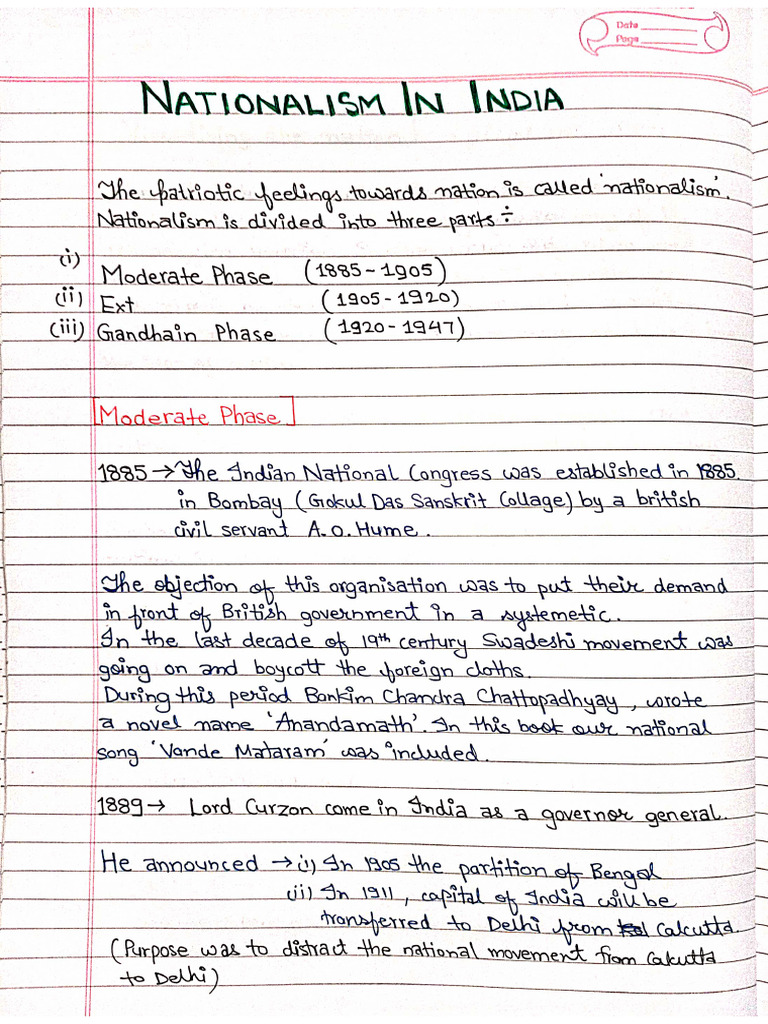 Date
Page
NATIONALISM IN INDIA
The patriotic feelings towards nation is called 'nationalism'.
Nationalism is divided into three parts ÷
(i) Moderate Phase (1885-1905)
(ii) Ext (1905-1920)
(iii) Gandhain Phase (1920-1947)
[Moderate Phase]
1885 → The Indian National Congress was established in 1885.
in Bombay (Gokul Das Sanskrit Collage) by a british
civil servant A.O. Hume.
The objection of this organisation was to put their demand
in front of British government in a systemetic.
In the last decade of 19th century Swadeshi movement was
going on and boycott the foreign cloths.
During this period Bankim Chandra Chattopadhyay, wrote
a novel name 'Anandamath'. In this book our national
song 'Vande Mataram' was included.
1889 → Lord Curzon come in India as a governor general.
He announced → (i) In 1905 the partition of Bengal
(ii) In 1911, capital of India will be
transferred to Delhi from Calcutta.
(Purpose was to distract the national movement from Calcutta
to Delhi)